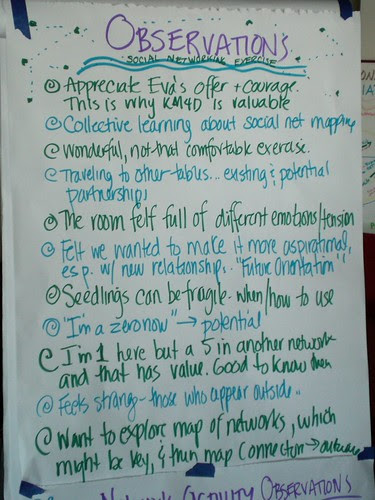 OBSERVATIONS
SOCIAL NETWORKING EXERCISE
Appreciate Eva's offer + courage.
This is why KM4D is valuable
Collective learning about social net mapping
Wonderful, not that comfortable exercise.
Traveling to other tables... existing & potential
partnerships
The room felt full of different emotions/tension
Felt we wanted to make it more aspirational,
esp. w/ new relationships.. "Future Orientation"
Seedlings can be fragile. when/how to use
"I'm a zero now" → potential
I'm 1 here but a 5 in another network
and that has value. Good to know them
Feels strange - those who appear outside..
Want to explore map of networks, which
might be key, & then map connection → outcome
Network Activity OBSERVATIONS